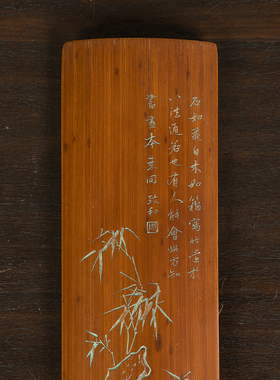 石如飛白木如籀寫竹還於
八法通若也有人能會此方知
書畫本來同 致和